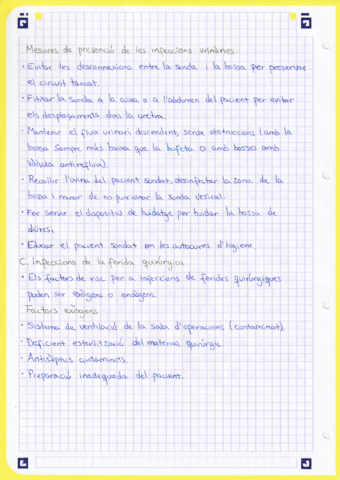 Mesures de prevenció de les infeccions urinàries.
· Evitar les desconnexions entre la sonda i la bossa per preservar
el circuit tancat.
· Fixar la sonda a la cuixa o a l'abdomen del pacient per evitar
els desplaçaments dins la uretra.
· Mantenir el flux urinari descendent, sense obstruccions (amb la
bossa sempre més baixa que la bufeta o amb bosses amb
Vàlvula antireflux).
· Recollir l'orina del pacient sondat, desinfectar la zona de la
bossa i mirar de no puncionar la sonda vesical.
· Fer servir el dispositiu de buidatge per buidar la bossa de
diüresi
· Educar el pacient sondat en les autocures d'higiene.
C. Infeccions de la ferida quirúrgica.
· Els factors de risc per a infeccions de ferides quirúrgiques
poden ser exògens o endògens.
Factors exògens
· Sistema de ventilació de la sala d'operacions (contaminat).
· Deficient esterilització del material quirúrgic.
· Antisèptics contaminats.
· Preparació inadequada del pacient.